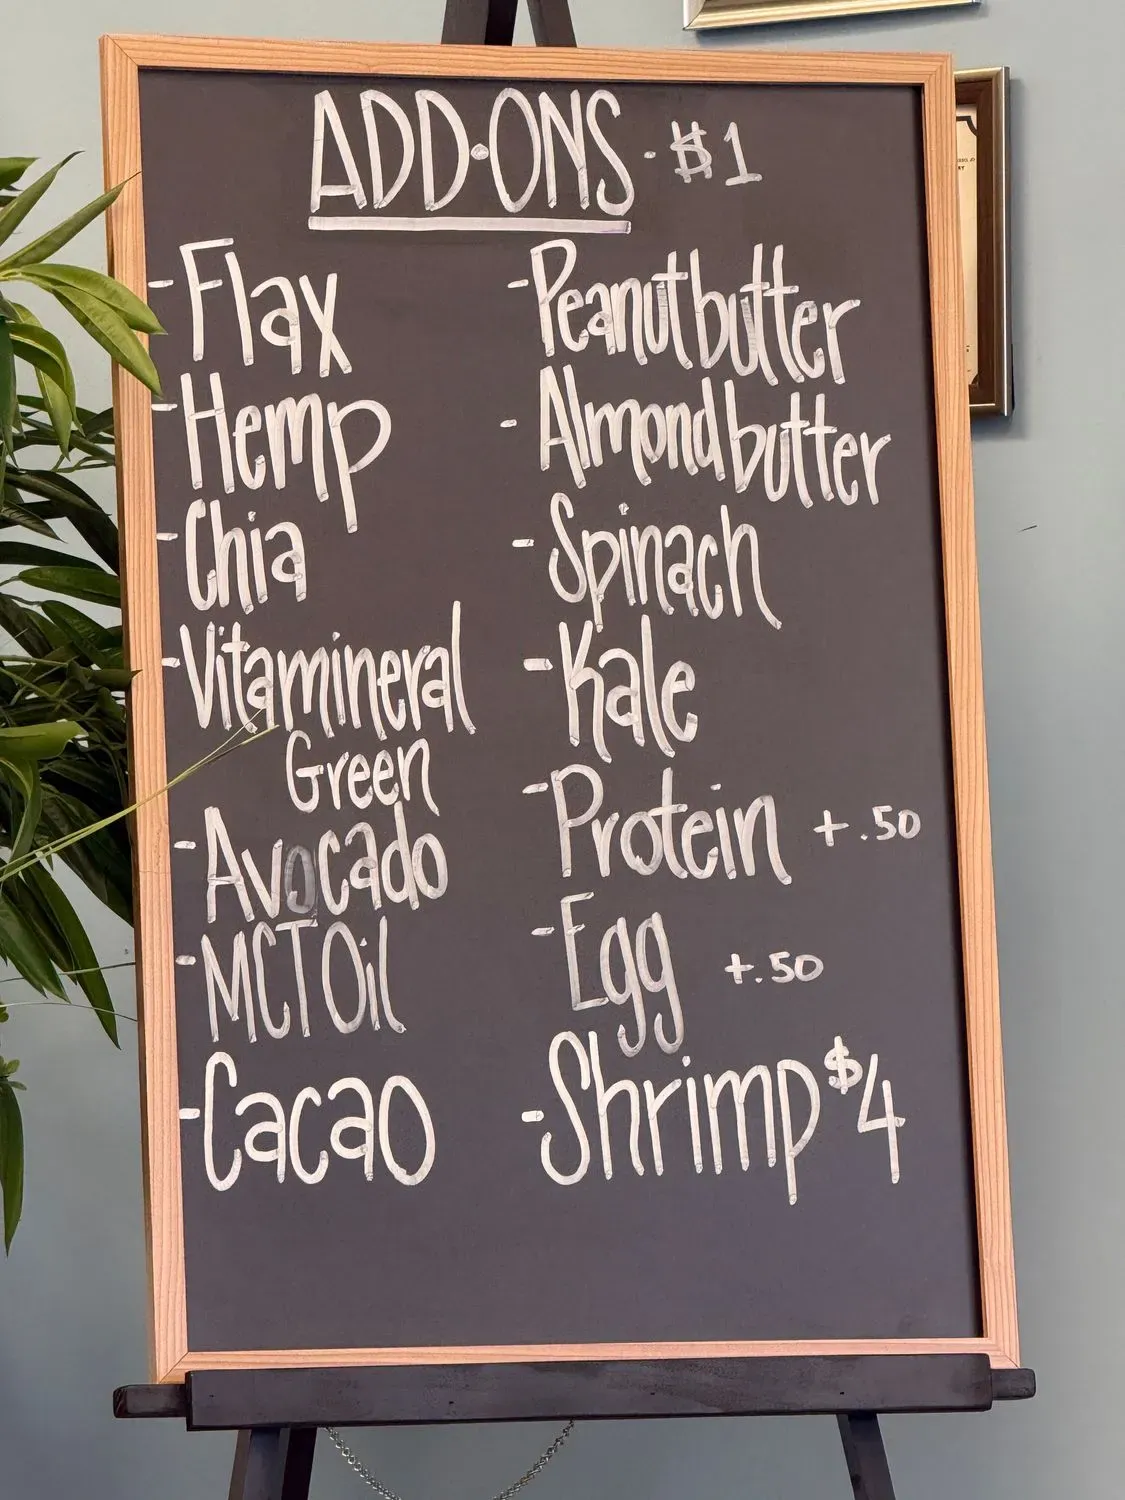 ADD·ONS · $1
- Flax
- Hemp
- Chia
- Vitamineral
Green
- Avocado
- MCT Oil
- Cacao
- Peanut butter
- Almond butter
- Spinach
- Kale
- Protein +.50
- Egg +.50
- Shrimp $4